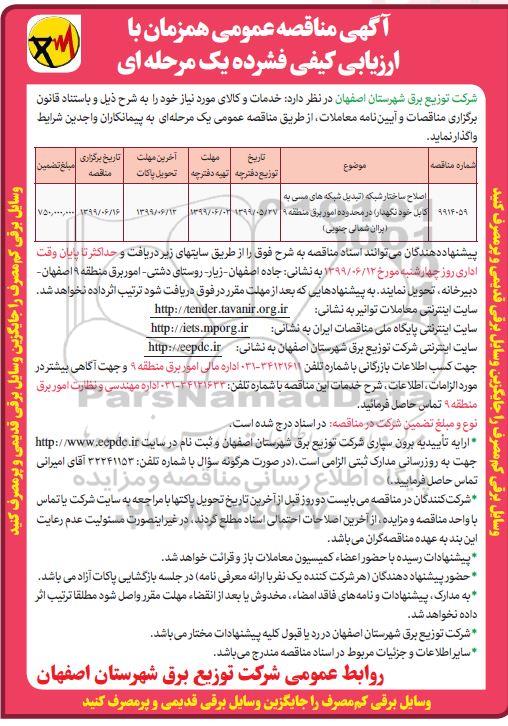 آگهی مناقصه عمومی همزمان با
ارزیابی کیفی فشرده یک مرحله ای
شرکت توزیع برق شهرستان اصفهان در نظر دارد: خدمات و کالای مورد نیاز خود را به شرح ذیل و باستناد قانون
برگزاری مناقصات و آیین نامه معاملات، از طریق مناقصه عمومی یک مرحله‌ای به پیمانکاران واجدین شرایط
واگذار نماید.
شماره مناقصه | موضوع | تاریخ توزیع دفترچه | مهلت تهیه دفترچه | آخرین مهلت تحویل پاکات | تاریخ برگزاری مناقصه | مبلغ تضمین
۹۹۱۴۰۵۹ | اصلاح ساختار شبکه (تبدیل شبکه های مسی به کابل خود نگهدار) در محدوده امور برق منطقه ۹ (بران شمالی جنوبی) | ۱۳۹۹/۰۵/۲۷ | ۱۳۹۹/۰۶/۰۲ | ۱۳۹۹/۰۶/۱۲ | ۱۳۹۹/۰۶/۱۶ | ۷۵۰,۰۰۰,۰۰۰
پیشنهاد دهندگان می‌توانند اسناد مناقصه به شرح فوق را از طریق سایتهای زیر دریافت و حداکثر تا پایان وقت
اداری روز چهارشنبه مورخ ۱۳۹۹/۰۶/۱۲ به نشانی: جاده اصفهان - زیار - روستای دشتی - امور برق منطقه ۹ اصفهان -
دبیرخانه، تحویل نمایند. به پیشنهادهایی که بعد از مهلت مقرر در فوق دریافت شود ترتیب اثر داده نخواهد شد.
سایت اینترنتی معاملات توانیر به نشانی: http://tender.tavanir.org.ir
سایت اینترنتی پایگاه ملی مناقصات ایران به نشانی: http://iets.mporg.ir
سایت اینترنتی شرکت توزیع برق شهرستان اصفهان به نشانی: http://eepdc.ir
جهت کسب اطلاعات بازرگانی با شماره تلفن: ۳۴۱۲۱۶۱۱-۰۳۱ اداره مالی امور برق منطقه ۹ و جهت آگاهی بیشتر در
مورد الزامات، اطلاعات، شرح خدمات این مناقصه با شماره تلفن: ۳۴۱۲۱۶۳۳-۰۳۱ اداره مهندسی و نظارت امور برق
منطقه ۹ تماس حاصل فرمائید.
نوع و مبلغ تضمین شرکت در مناقصه: در اسناد درج شده است.
*ارایه تأییدیه برون سپاری شرکت توزیع برق شهرستان اصفهان و ثبت نام در سایت http://www.eepdc.ir
جهت به روز رسانی مدارک ثبتی الزامی است. (در صورت هرگونه سؤال با شماره تلفن: ۳۲۲۴۱۱۵۳ آقای امیرانی
تماس حاصل فرمایید.)
*شرکت‌کنندگان در مناقصه می‌بایست دو روز قبل از آخرین تاریخ تحویل پاکتها با مراجعه به سایت شرکت یا تماس
با واحد مناقصه و مزایده، از آخرین اصلاحات احتمالی اسناد مطلع گردند، در غیر اینصورت مسئولیت عدم رعایت
این بند به عهده مناقصه‌گران می‌باشد.
*پیشنهادات رسیده با حضور اعضاء کمیسیون معاملات باز و قرائت خواهد شد.
*حضور پیشنهاد دهندگان (هر شرکت کننده یک نفر با ارائه معرفی نامه) در جلسه بازگشایی پاکات آزاد می باشد.
*به مدارک، پیشنهادات و نامه‌های فاقد امضاء، مخدوش یا بعد از انقضاء مهلت مقرر واصل شود مطلقا ترتیب اثر
داده نخواهد شد.
*شرکت توزیع برق شهرستان اصفهان در رد یا قبول کلیه پیشنهادات مختار می‌باشد.
*سایر اطلاعات و جزئیات مربوط در اسناد مناقصه مندرج می‌باشد.
روابط عمومی شرکت توزیع برق شهرستان اصفهان
وسایل برقی کم‌مصرف را جایگزین وسایل برقی قدیمی و پرمصرف کنید
وسایل برقی کم‌مصرف را جایگزین وسایل برقی قدیمی و پرمصرف کنید
وسایل برقی کم‌مصرف را جایگزین وسایل برقی قدیمی و پرمصرف کنید
ParsNamadData